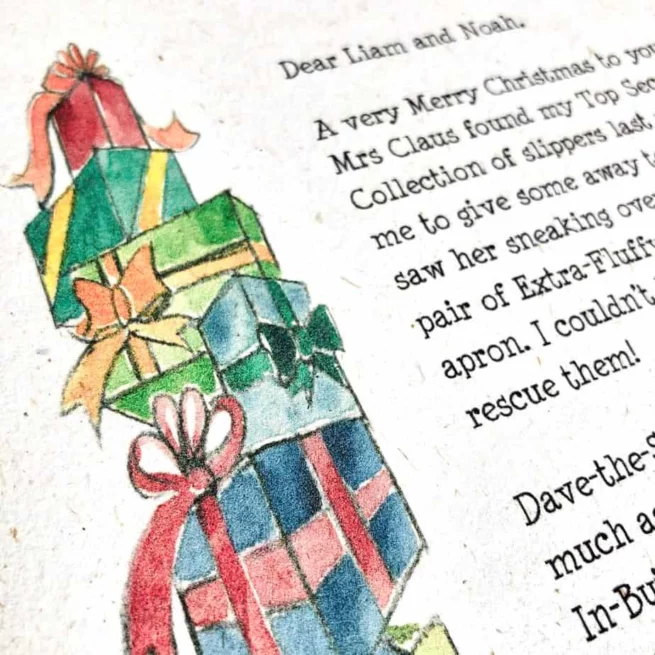 Dear Liam and Noah.
A very Merry Christmas to you
Mrs Claus found my Top Sec
Collection of slippers last
me to give some away to
saw her sneaking over
pair of Extra-Fluffy
apron. I couldn't
rescue them!
Dave-the-S
much as
In-Bu